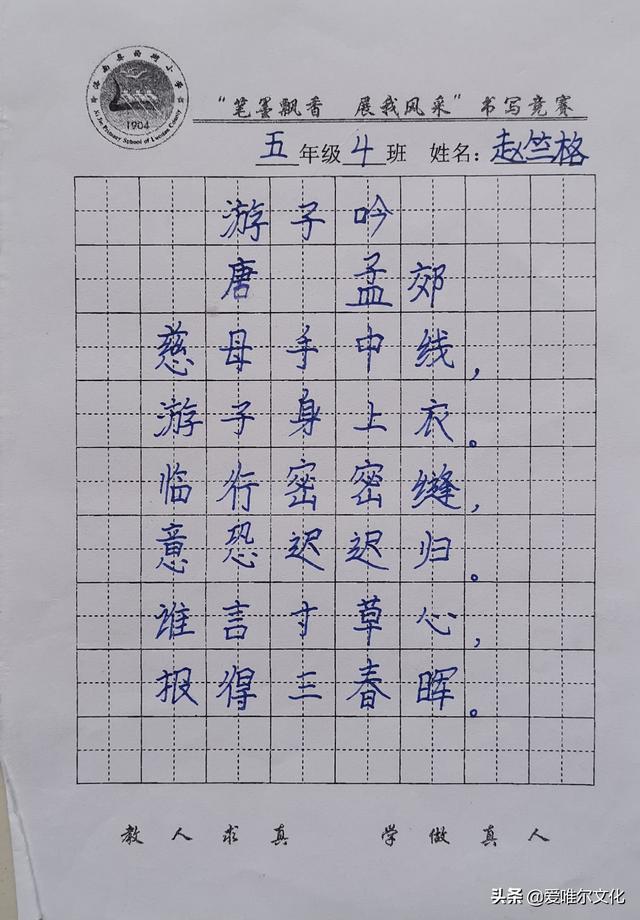 1904
Xi Jie Primary School of Luonan County
“笔墨飘香 展我风采”书写竞赛
五年级4班 姓名：赵竺格
游子吟
唐 孟郊
慈母手中线，
游子身上衣。
临行密密缝，
意恐迟迟归。
谁言寸草心，
报得三春晖。
教人求真 学做真人
头条 @爱唯尔文化